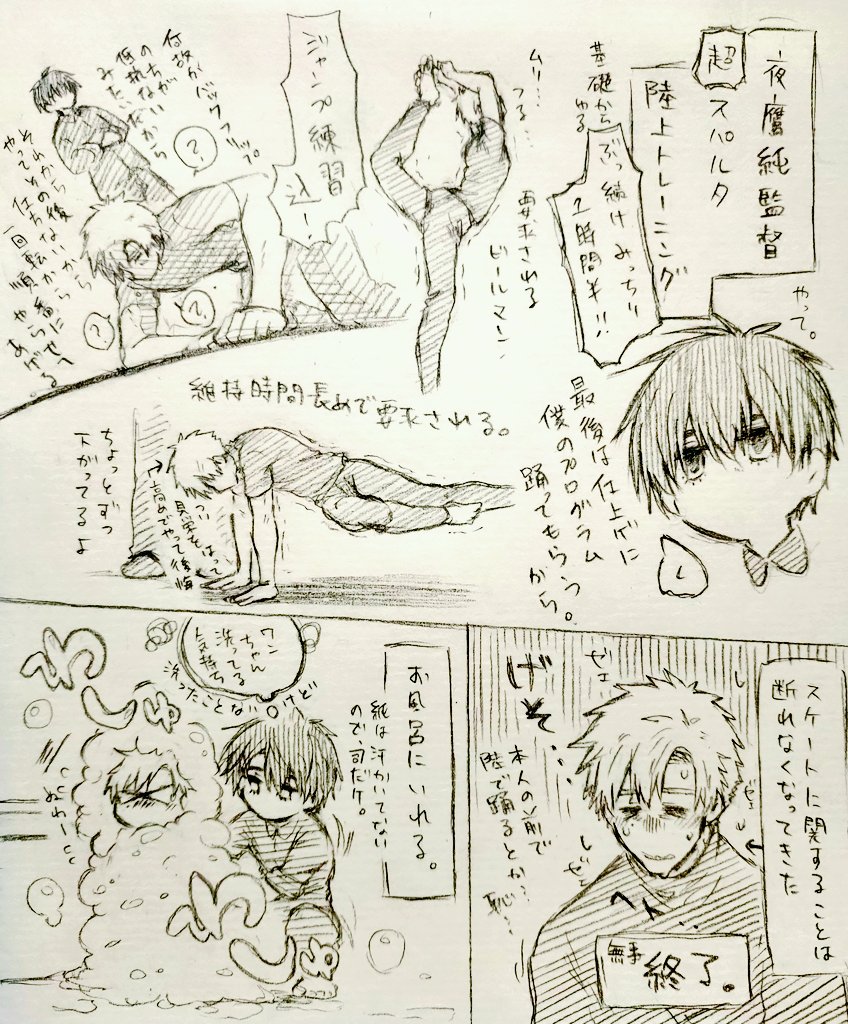 夜鷹純監督
超
スパルタ
陸上トレーニング
基礎からやる
ぶっ続けみっちり
2時間半!!
ムリ…
つる…
要求される
ビールマン
ジャンプ練習
込!
何故かバックフリップ
のちがい
みたいだから
それから後
?
?
?
やって。
最後は仕上げに
僕のプログラム
踊ってもらう。
から
し
維持時間長めで要求される。
ちょっとずつ
下がってるよ
つい
見栄をはって
高めでやって後悔
スケートに関することは
断れなくなってきた
ゼェ
ゼェ
げそ…
本人の前で
陸で踊るとか…
恥…
ヘト…
無事
終了。
お風呂にいれる。
純は汗かいてない
ので、司だケ。
ワンちゃん
洗ってる
気持ち
洗ったことないけど
わしゅ
わしゅ
ぬわーっ